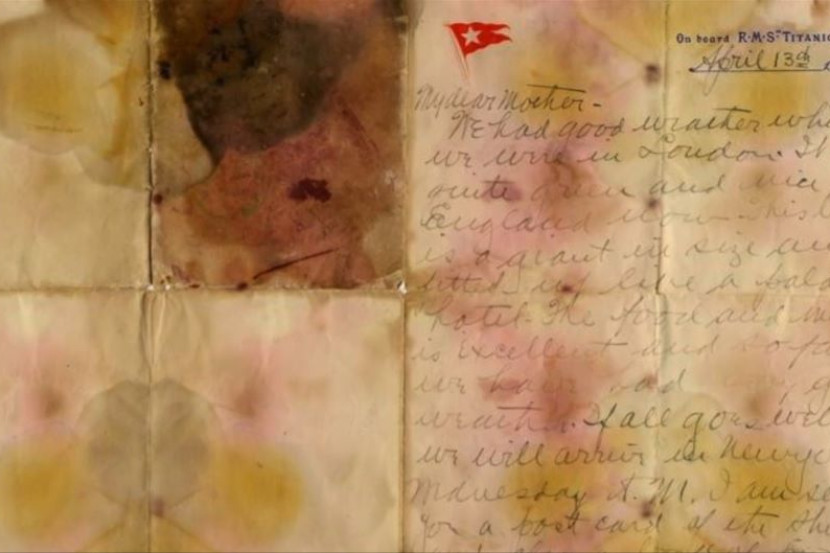 On board R·M·S "TITANIC
April 13th
My dear Mother -
We had good weather whi
we were in London. It
quite green and nice
England now. This
is a giant in size an
fitted up like a
hotel. The food and
is excellent and so far
we have had
weather. If all goes well
we will arrive in New
Wednesday A.M. I am
for a post card of the Sh